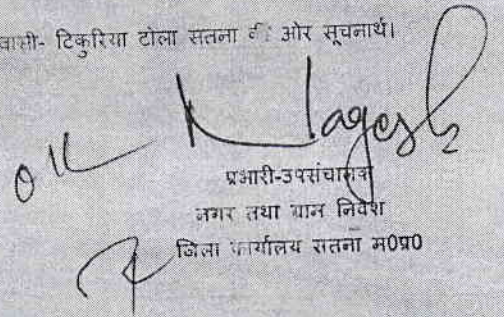 वासी- टिकुरिया टोला सतना की ओर सूचनार्थ।
ok Nagesh
प्रभारी-उपसंचालक
नगर तथा ग्राम निवेश
जिला कार्यालय सतना म0प्र0